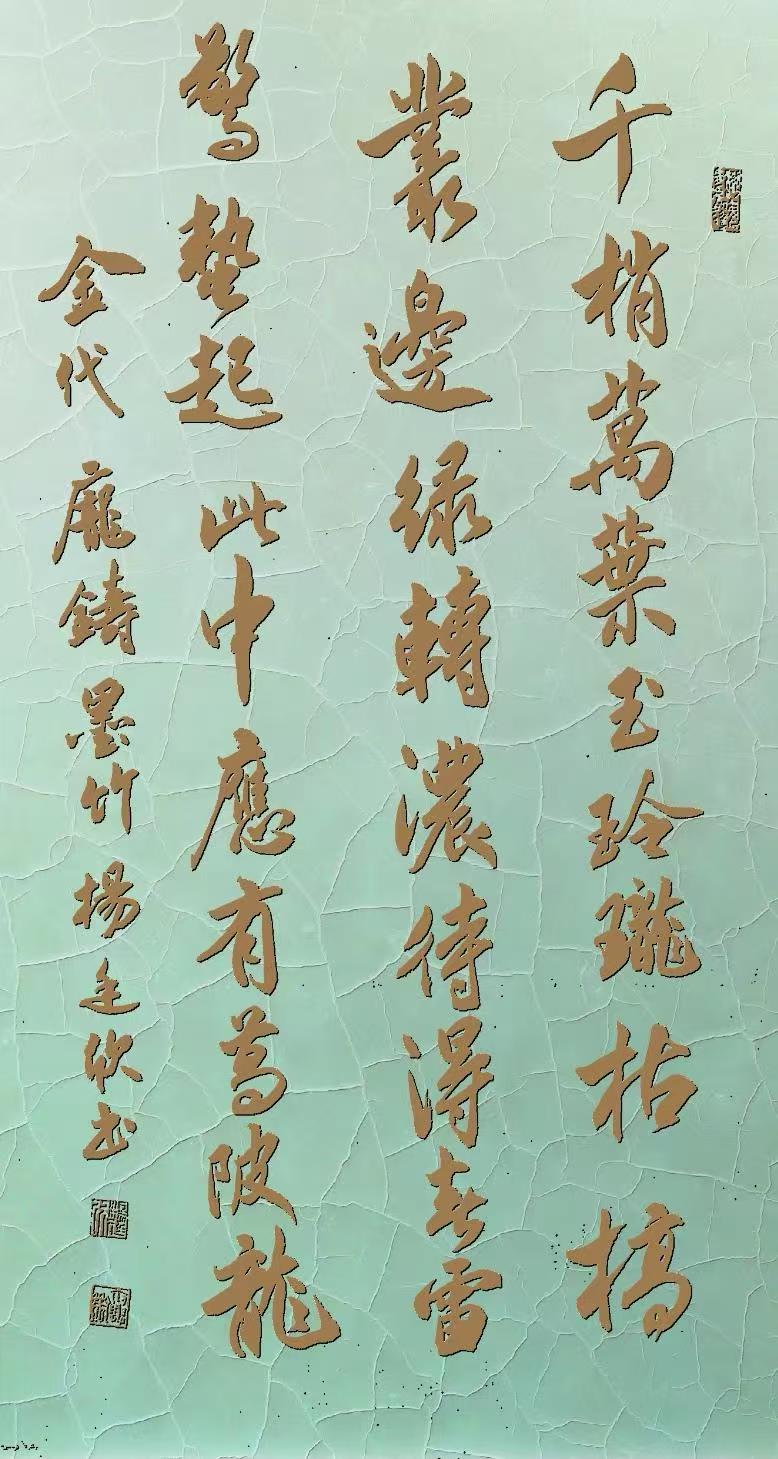 千梢萬葉玉玲瓏枯槁
叢邊绿轉濃待得春雷
驚蟄起此中應有葛陂龍
金代龐鑄墨竹楊廷欣書